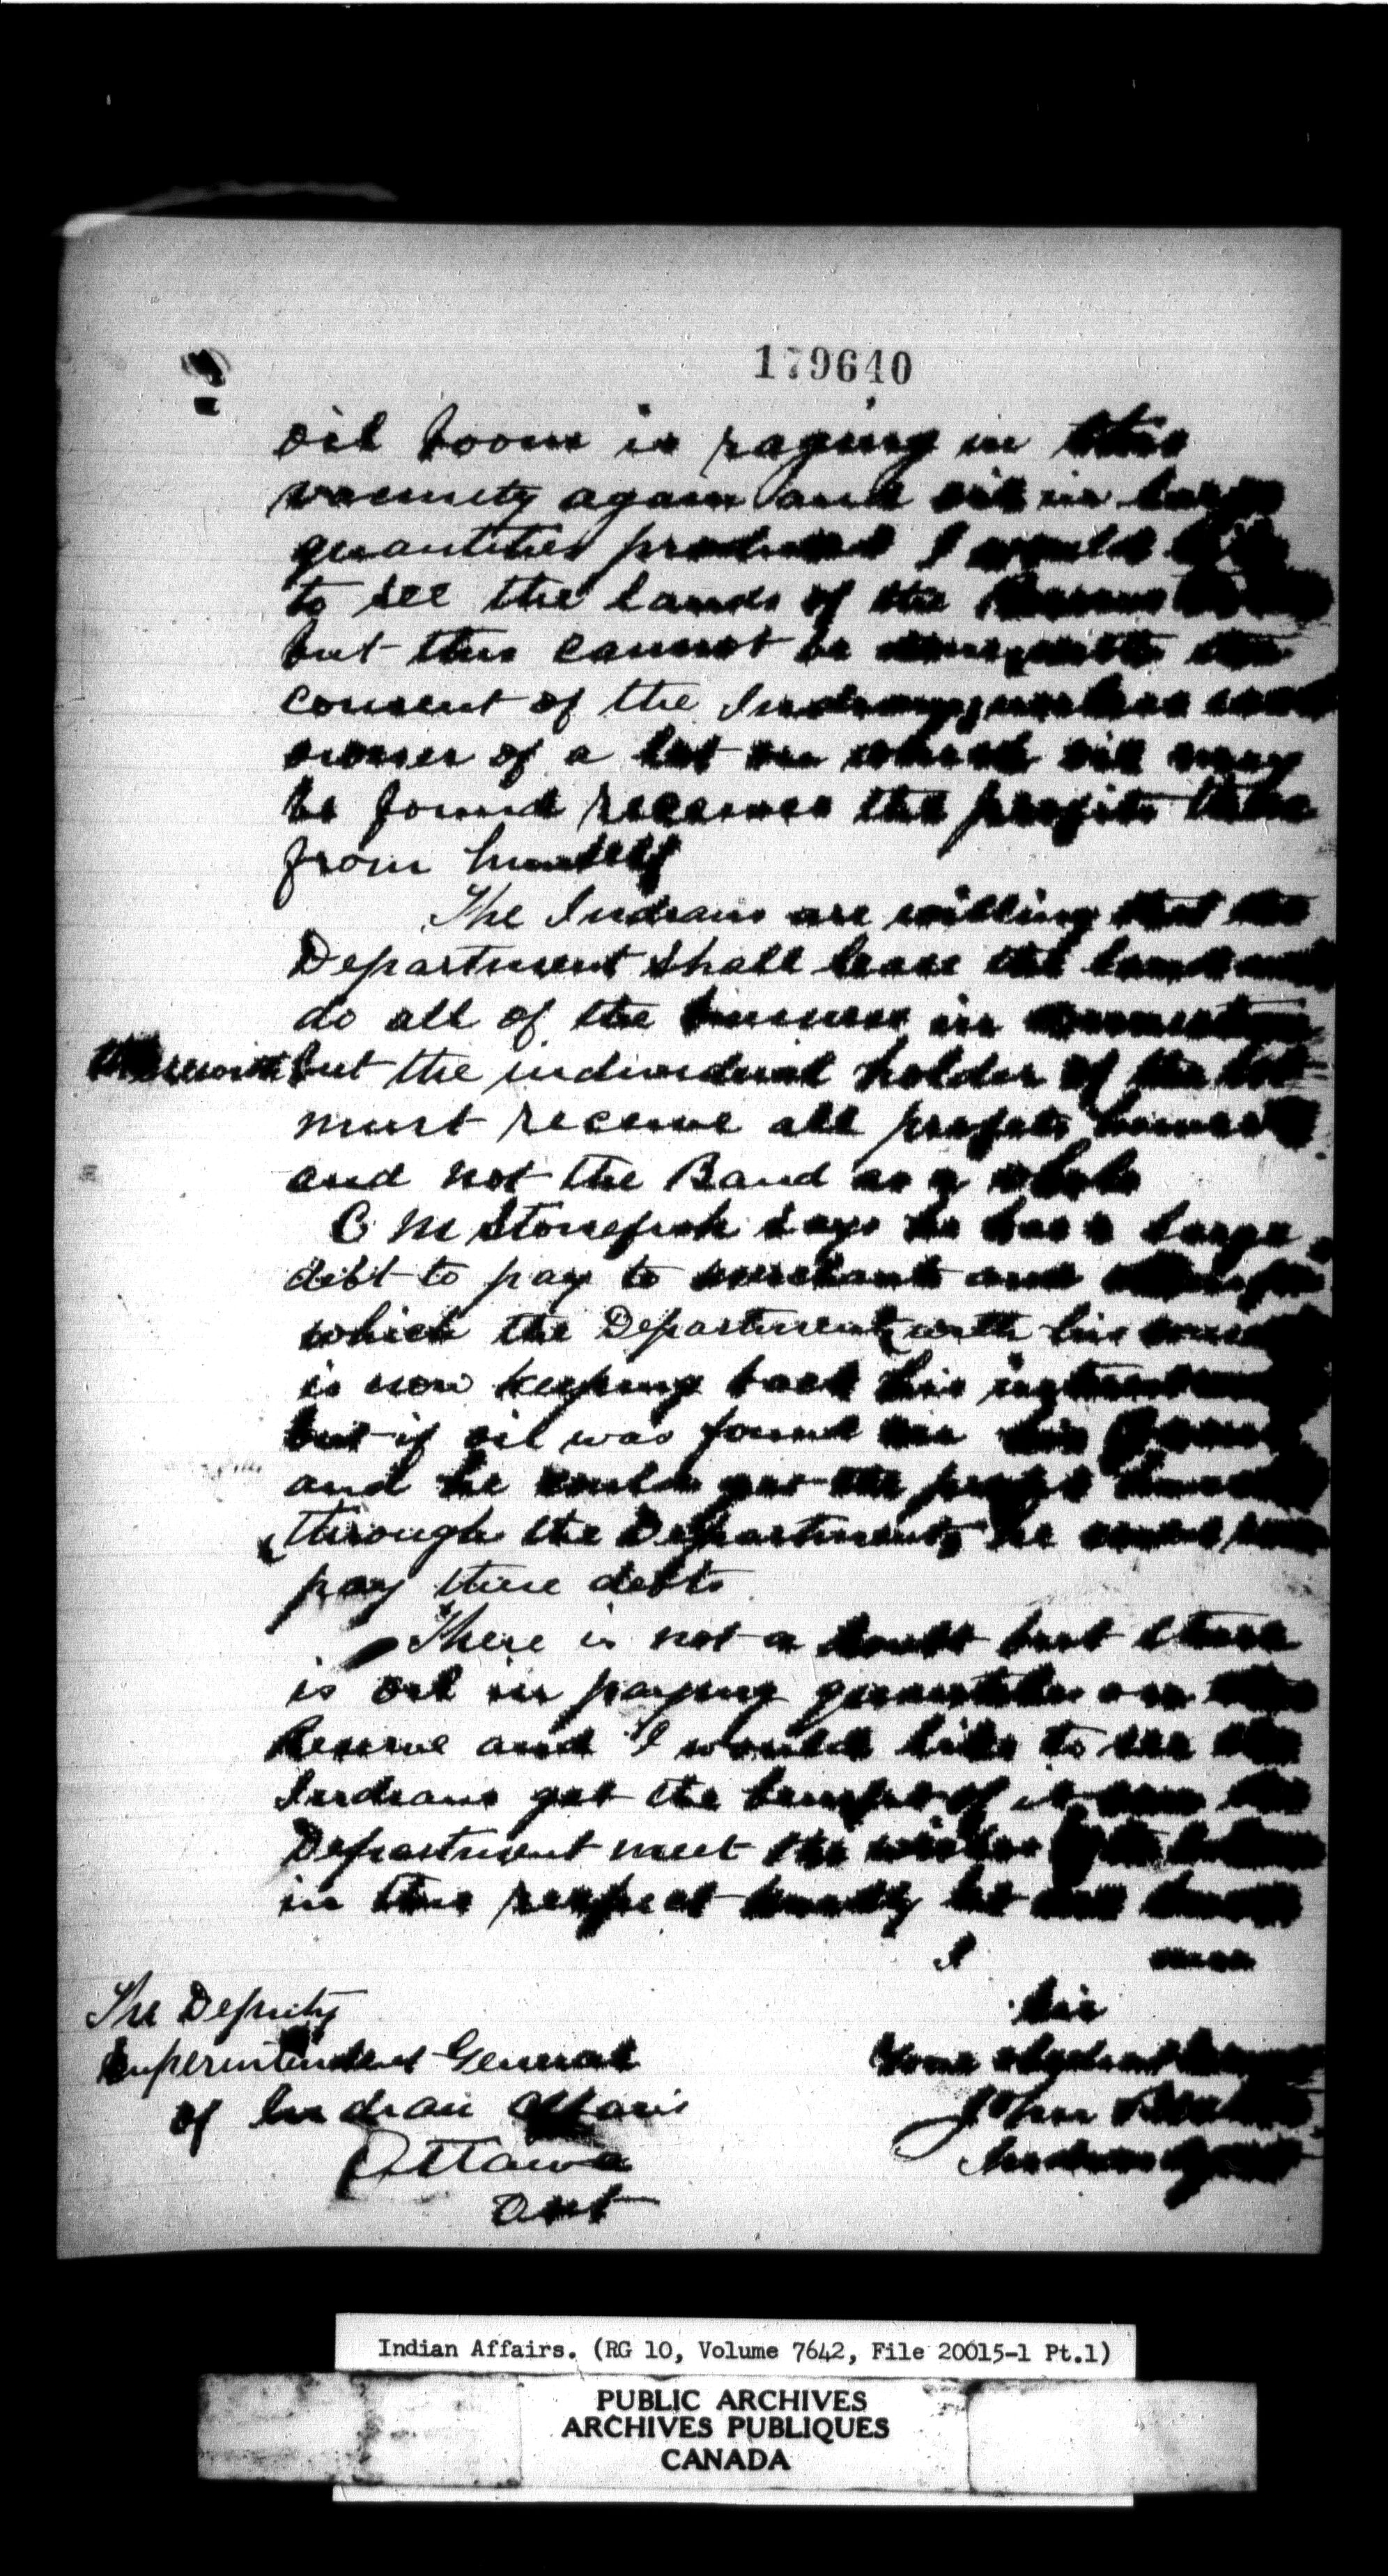 179640
oil boom is raging in this
vacinity again and oil in large
quantities produced I would like
to see the lands of the Reserve
but this cannot be done, with the
consent of the Indians, unless each
owner of a lot on which oil may
be found receives the profits there
from himself
The Indians are willing that the
Department shall lease the land and
do all of the business in connection
therewith but the individual holder of the lot
must receive all profits himself
and not the Band as a whole
C M Stonefish says he has a large
debt to pay to merchants and
which the Department, with his
is now keeping back his
but if oil was found on his farm
and he could get the profit himself
through the Department, he could soon
pay these debts
There is not a doubt but there
is oil in paying quantities on this
Reserve and I would like to see the
Indians get the benefit of it can the
Department meet the wishes of the Indians
in this respect kindly let me know
I
Sir
The Deputy
Superintendent General
of Indian Affairs
Ottawa
Ont
Your obedient servant
John
Indian Agent
Indian Affairs. (RG 10, Volume 7642, File 20015-1 Pt.1)
PUBLIC ARCHIVES
ARCHIVES PUBLIQUES
CANADA